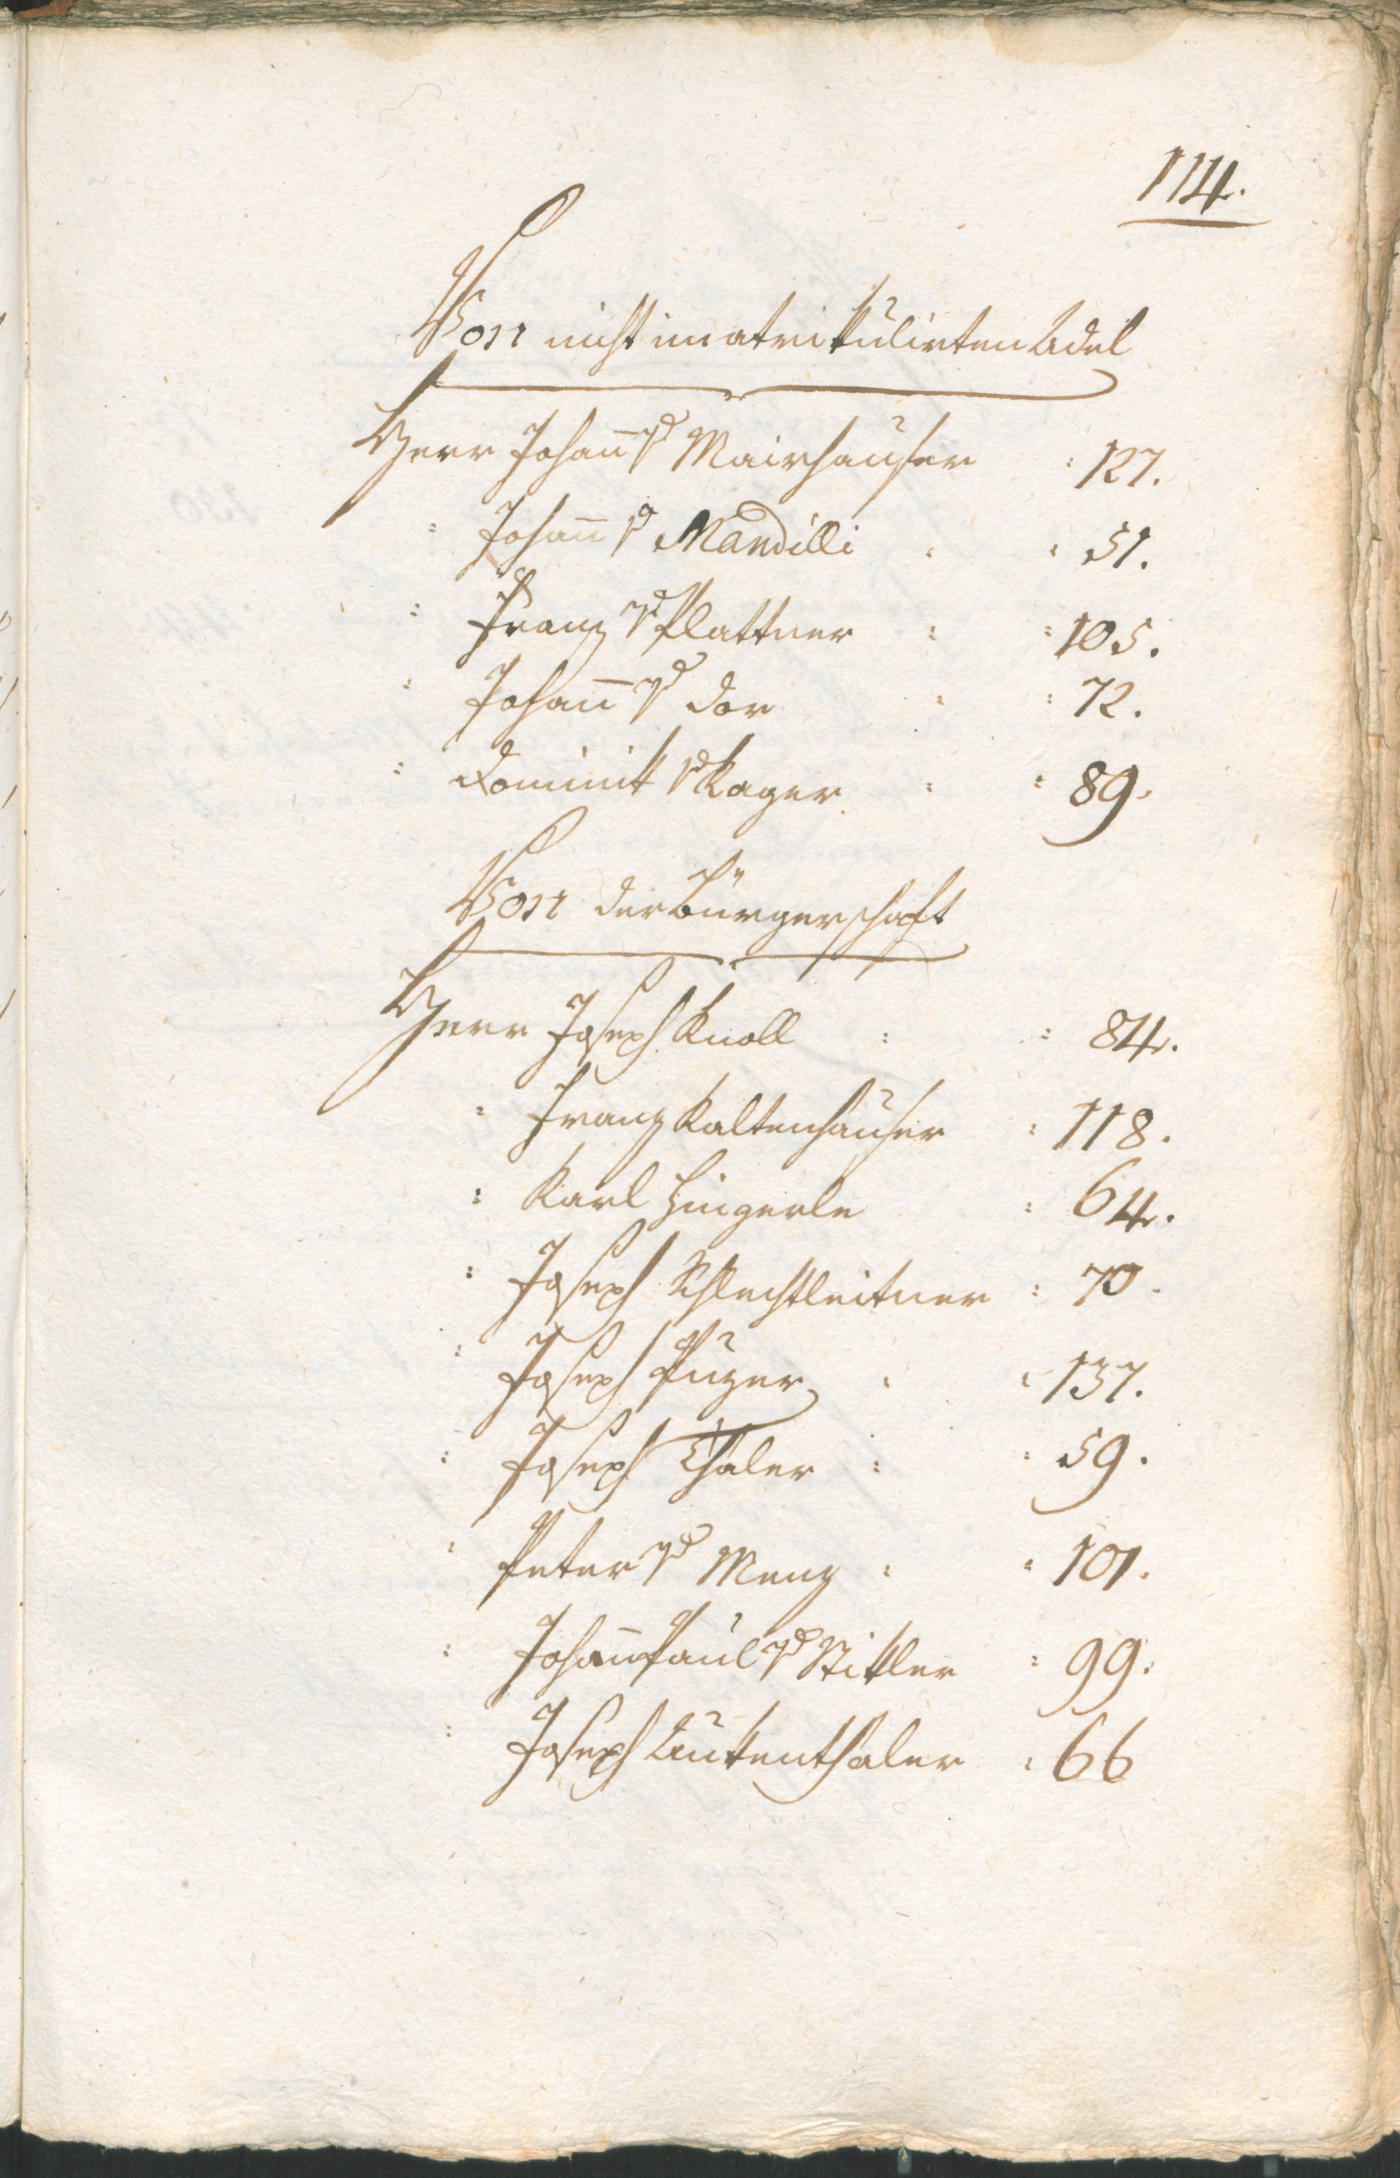 114.
Von nicht imatrikulirten Adel
Herr Johann v Mairhauser : 127.
: Johann v Mandilli : : 51.
: Franz v Plattner : : 105.
: Johann v Dor : : 72.
: Dominik v Kager : : 89.
Von der Bürgerschaft
Herr Joseph Knoll : : 84.
: Franz Kaltenhauser : 118.
: Karl Zingerle : 64.
: Joseph Schlechtleitner : 70.
: Joseph Puzer : : 137.
: Joseph Thaler : : 59.
: Peter v Menz : : 101.
: Johann Paul v Stikler : 99.
: Joseph Lutenthaler : 66